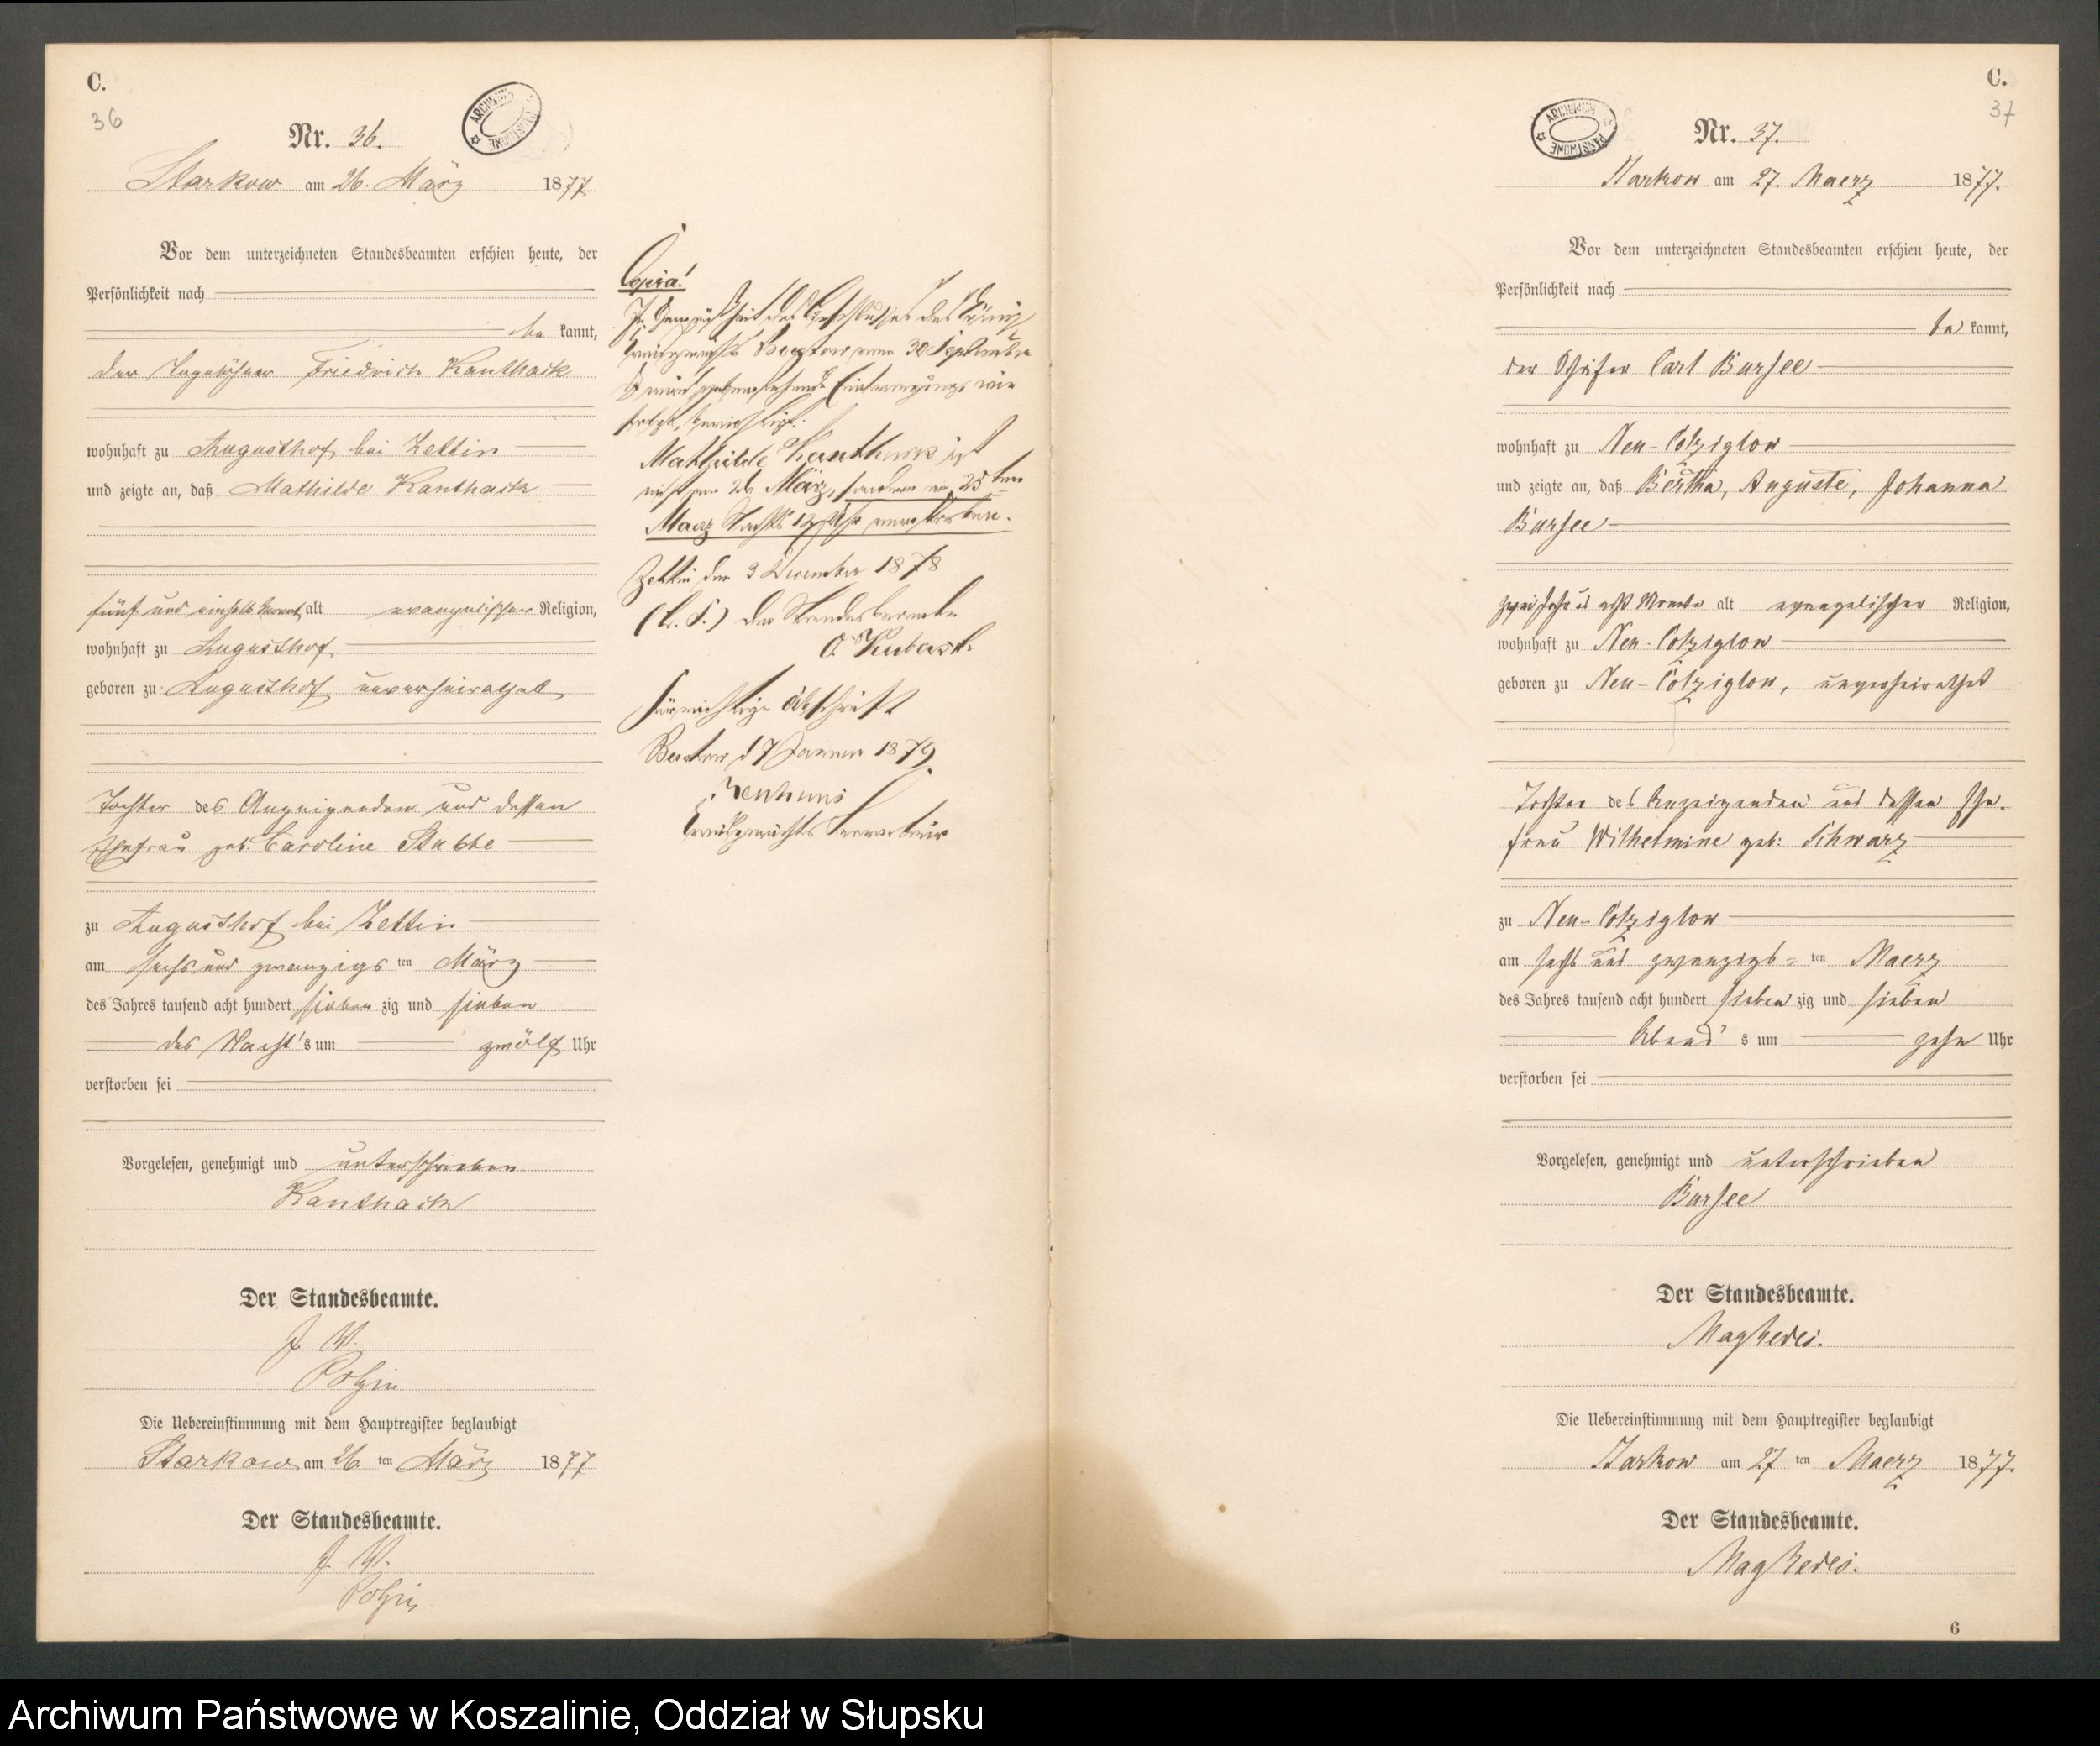 C.
36
Nr. 36.
ARCHIWUM PAŃSTWOWE
Starkow am 26. März 1877
Vor dem unterzeichneten Standesbeamten erschien heute, der
Persönlichkeit nach
be kannt,
der Tagelöhner Friedrich Kanthack
wohnhaft zu Augusthof bei Zettin
und zeigte an, daß Mathilde Kanthack
fünf und einhalb Monat alt evangelischer Religion,
wohnhaft zu Augusthof
geboren zu Augusthof unverheirathet
Tochter des Anzeigenden und dessen
Ehefrau geb Caroline Stubbe
zu Augusthof bei Zettin
am sechs und zwanzigs ten März
des Jahres tausend acht hundert sieben zig und sieben
des Nacht's um zwölf Uhr
verstorben sei
Vorgelesen, genehmigt und unterschrieben
Kanthack
Der Standesbeamte.
J. V.
Polzin
Die Uebereinstimmung mit dem Hauptregister beglaubigt
Starkow am 26 ten März 1877
Der Standesbeamte.
J. V.
Polzin
Copia!
In Gemäßheit des Beschlusses des König
Kreisgerichts Buetow vom 30 September
wird nebenstehende Eintragung, wie
folgt, berichtigt:
Mathilde Kanthack ist
nicht am 26 März, sondern am 25ten
Maerz Nachts 12 Uhr verstorben.
Zettin den 3 December 1878
(L. S.) Der Standesbeamte
O. Kubasch
Für richtige Abschrift
Buetow, d 7 Januar 1879.
Kreisgerichts Secretair
C.
37
Nr. 37.
ARCHIWUM PAŃSTWOWE
Starkow am 27. Maerz 1877.
Vor dem unterzeichneten Standesbeamten erschien heute, der
Persönlichkeit nach
be kannt,
der Schäfer Carl Bursee
wohnhaft zu Neu-Colziglow
und zeigte an, daß Bertha, Auguste, Johanna
Bursee
zwei Jahr u acht Monate alt evangelischer Religion,
wohnhaft zu Neu-Colziglow
geboren zu Neu-Colziglow, unverheirathet
Tochter des Anzeigenden und dessen Ehe-
frau Wilhelmine geb: Schwarz
zu Neu-Colziglow
am sechs und zwanzigs= ten Maerz
des Jahres tausend acht hundert sieben zig und sieben
Abend's um zehn Uhr
verstorben sei
Vorgelesen, genehmigt und unterschrieben
Bursee
Der Standesbeamte.
Die Uebereinstimmung mit dem Hauptregister beglaubigt
Starkow am 27 ten Maerz 1877.
Der Standesbeamte.
6
Archiwum Państwowe w Koszalinie, Oddział w Słupsku